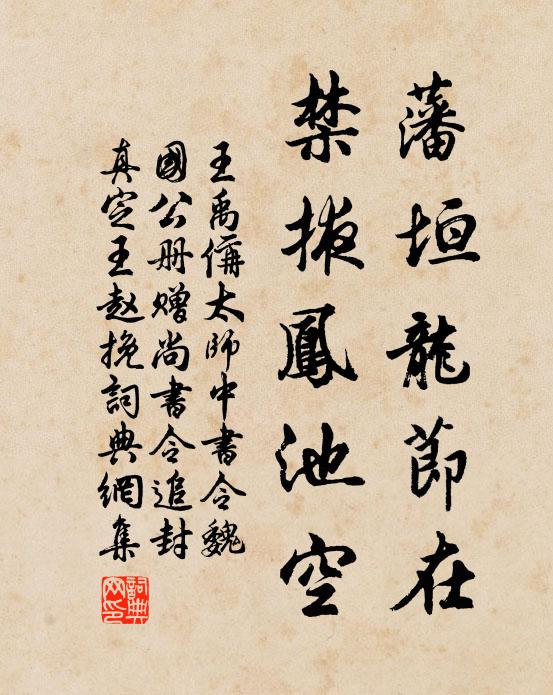 藩垣龍節在
禁掖鳳池空
王禹偁太師中書令魏
國公册贈尚書令追封
真定王趙挽詞典網集
詞典网印